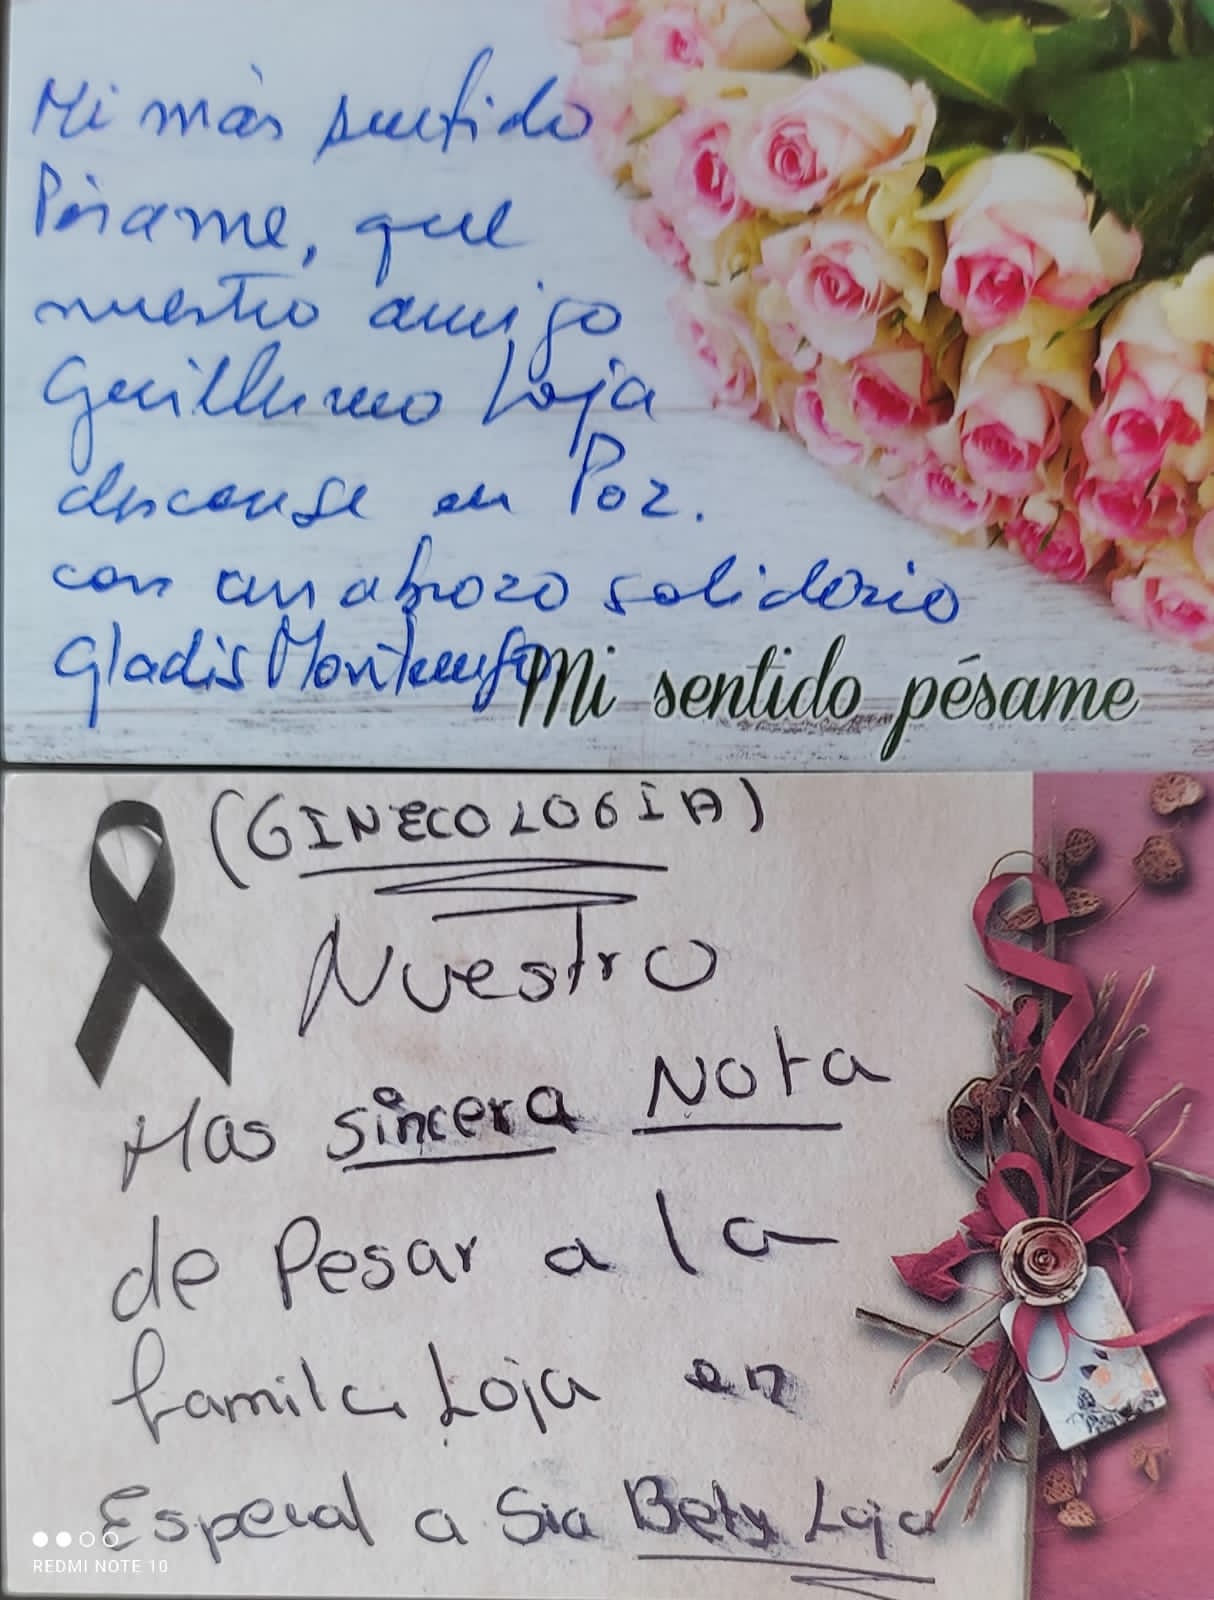 Mi más sentido
Pésame, que
nuestro amigo
Guillermo Loja
descanse en Paz.
con un abrazo solidario
Gladis Montenegro
Mi sentido pésame
(GINECOLOGIA)
Nuestro
Mas sincera Nota
de Pesar a la
familia Loja en
Especial a Sra Bety Loja
REDMI NOTE 10